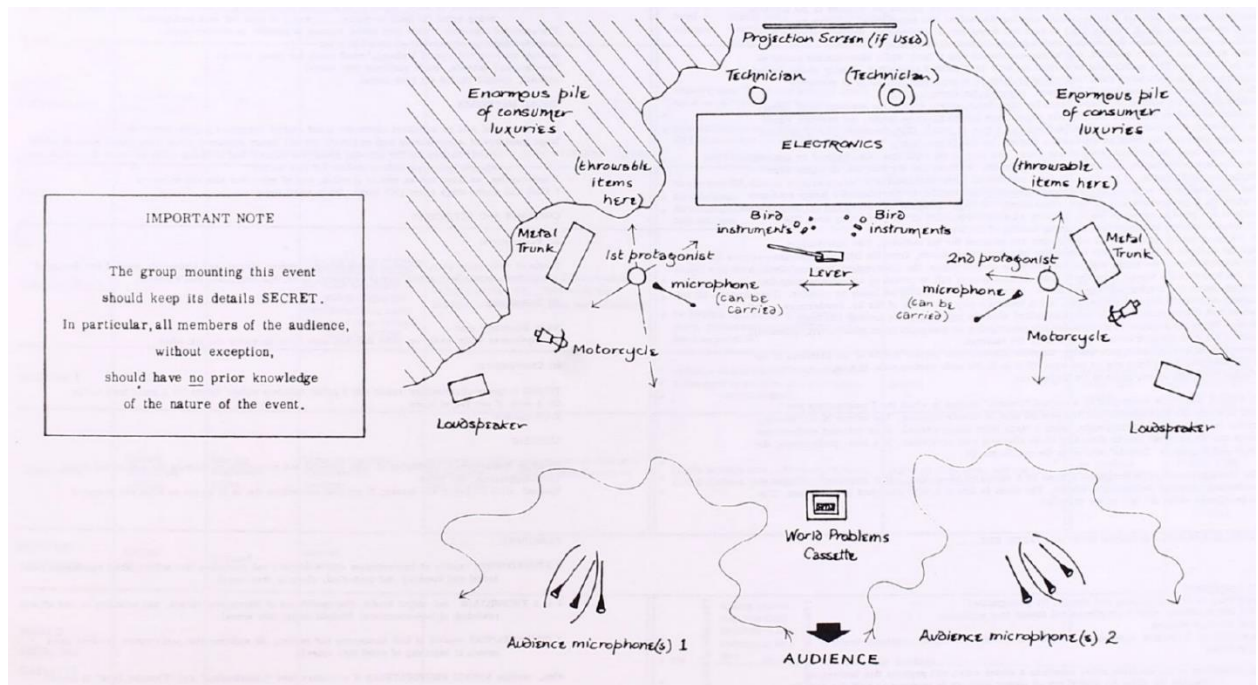 IMPORTANT NOTE
The group mounting this event
should keep its details SECRET.
In particular, all members of the audience,
without exception,
should have no prior knowledge
of the nature of the event.
Projection Screen (if used)
Technician
(Technician)
Enormous pile
of consumer
luxuries
Enormous pile
of consumer
luxuries
ELECTRONICS
(throwable
items
here)
(throwable
items here)
Bird
instruments
Bird
instruments
Metal
Trunk
1st protagonist
Lever
2nd protagonist
Metal
Trunk
microphone
(can be
carried)
microphone
(can be
carried)
Motorcycle
Motorcycle
Loudspeaker
Loudspeaker
World Problems
Cassette
Audience microphone(s) 1
AUDIENCE
Audience microphone(s) 2